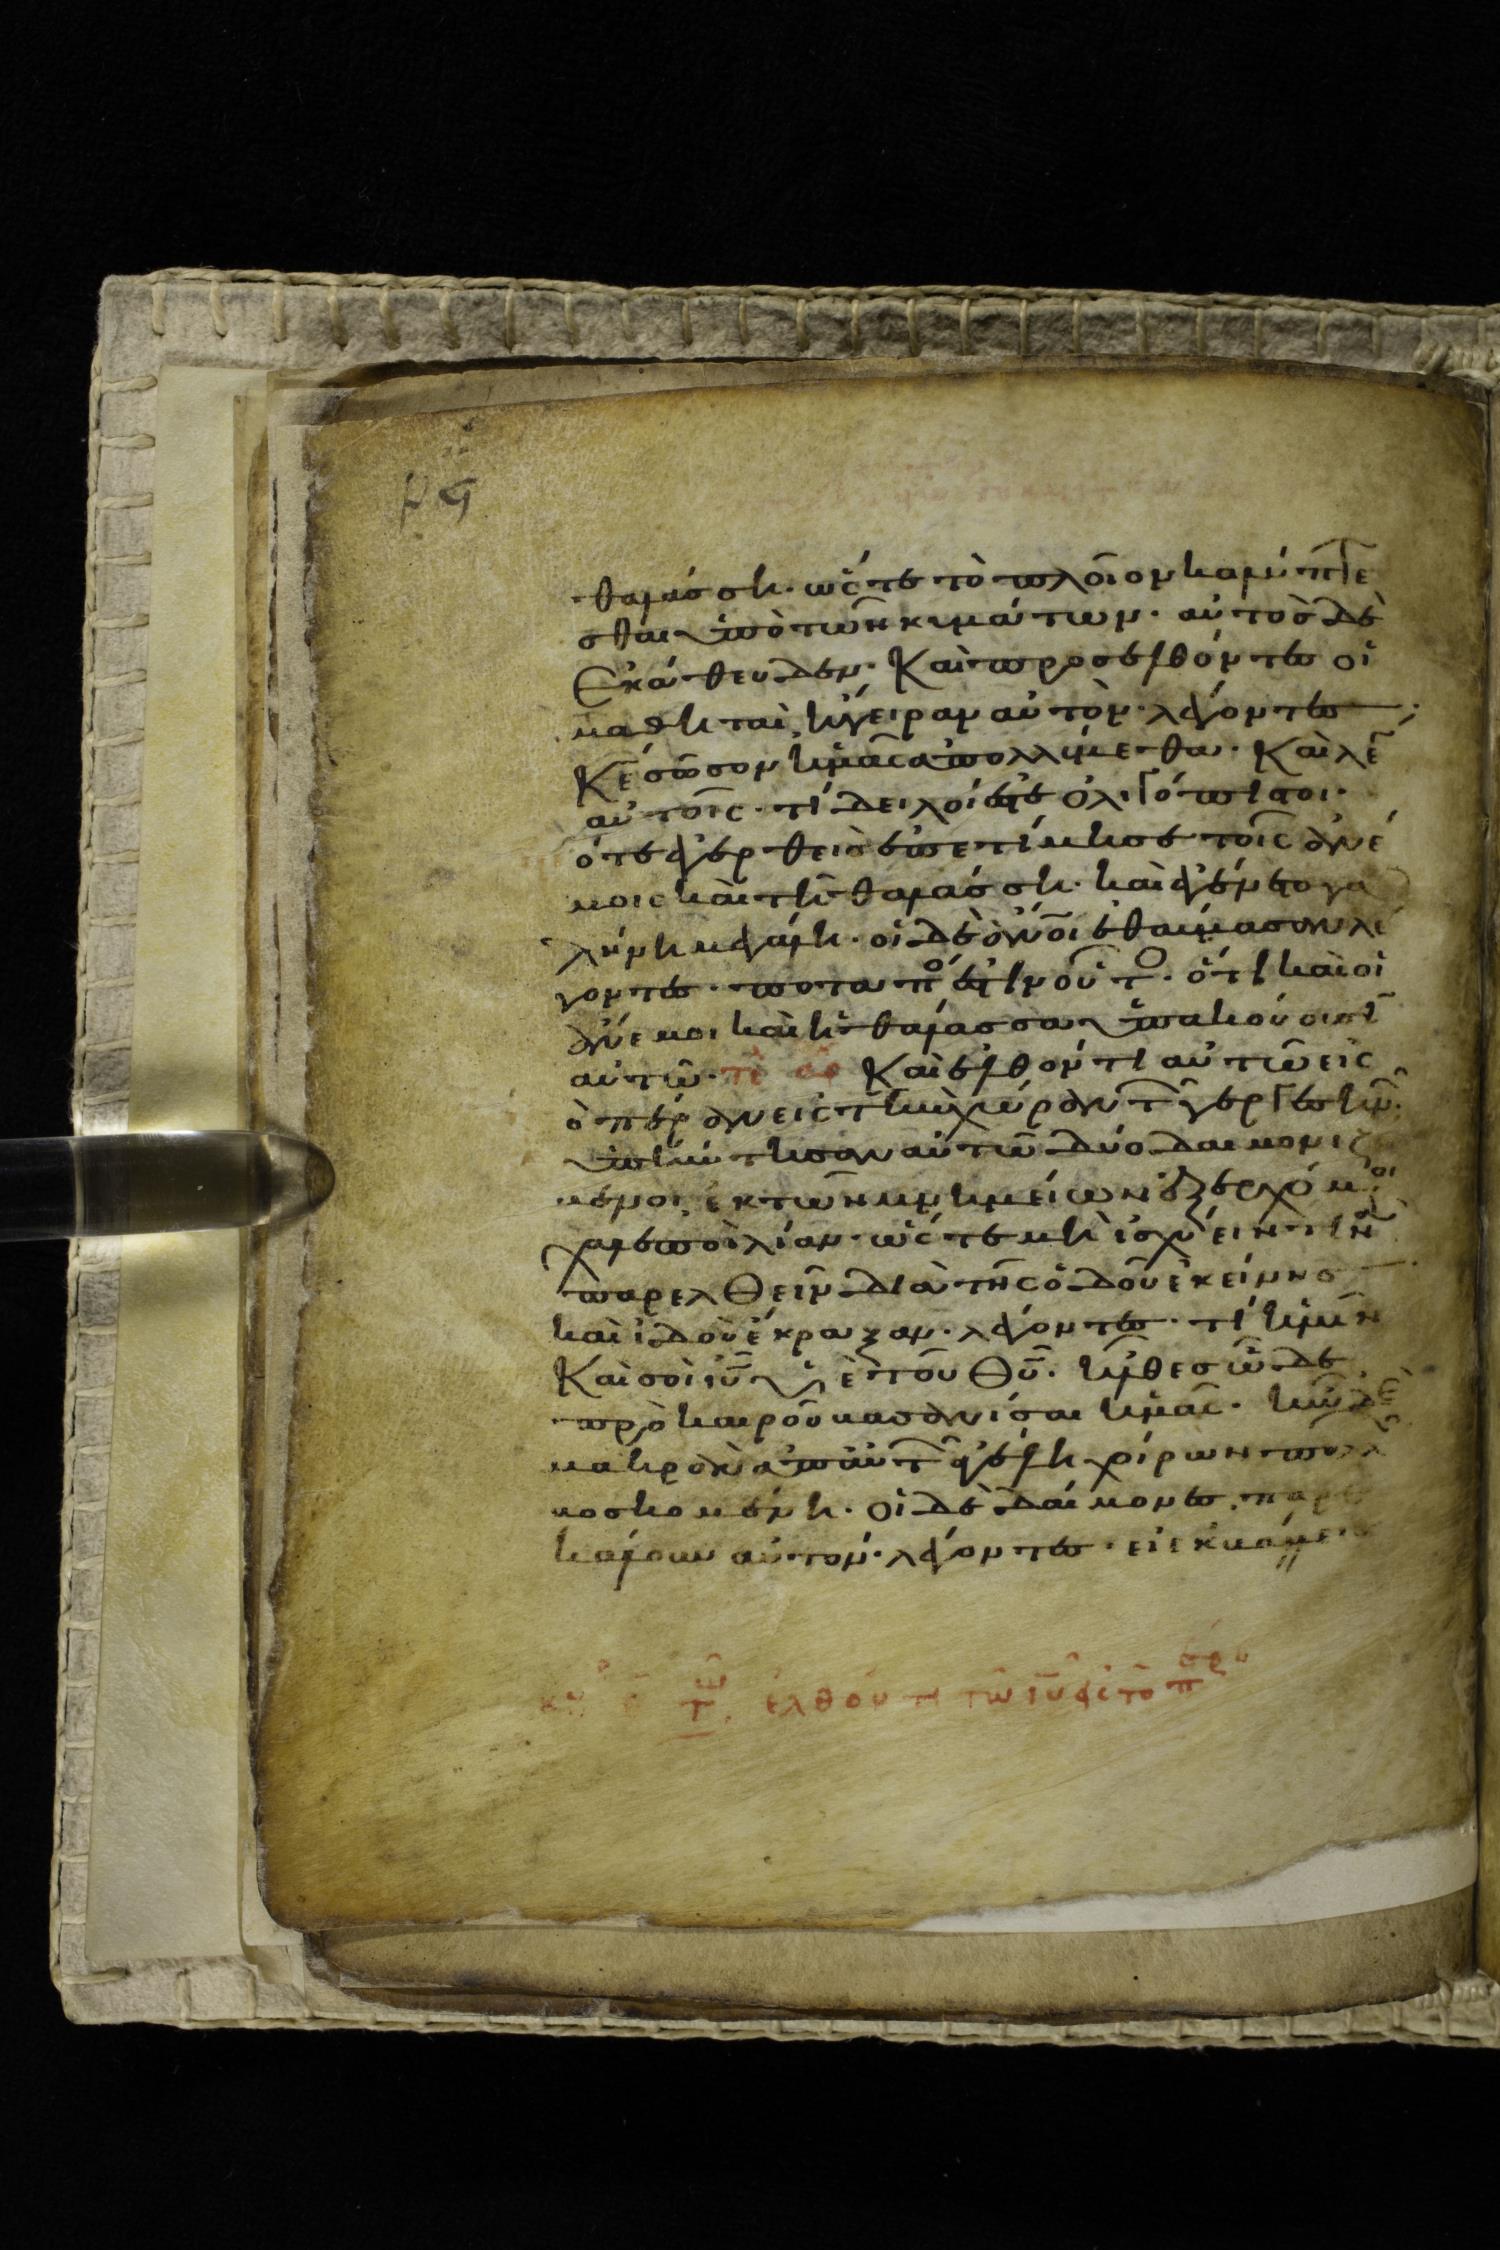 θαλάσση· ὥστε τὸ πλοῖον καλύπτε
σθαι ὑπὸ τῶν κυμάτων· αὐτὸς δὲ
ἐκάθευδεν· Καὶ προσελθόντες οἱ
μαθηταὶ, ἤγειραν αὐτὸν· λέγοντες
κε σῶσον ἡμᾶς ἀπολλύμεθα· Καὶ λέ
αὐτοῖς· τί δειλοί ἐστε ὀλιγόπιστοι·
ὅτε ἐγερθεὶς ἐπετίμησε τοῖς ἀνέ
μοις καὶ τῇ θαλάσση· καὶ ἐγένετο γα
λήνη μεγάλη· οἱ δὲ ἀνοι ἐθαύμασαν λέ
γοντες· ποταπός ἐστιν οὗτο· ὅτι καὶ οἱ
ἄνεμοι καὶ ἡ θάλασσα ὑπακούουσιν
αὐτῶ· Καὶ ἐλθόντι αὐτῶ εἰς
ὁ πέραν εἰς τὴν χώραν τ γεργεσηνῶν·
ὑπήντησαν αὐτῶ δύο δαιμονιζ
μενοι, ἐκ τῶν μνημείων ἐξερχόμοι
χαλεποὶ λίαν· ὥστε μὴ ἰσχύειν τινὰ
παρελθεῖν διὰ τῆς ὁδοῦ ἐκείνης
καὶ ἰδοὺ ἔκραξαν· λέγοντες· τί ἡμῖν
Καὶ σοὶ ιυ υἱὲ τοῦ θυ· ἦλθες ὧδε
πρὸ καιροῦ βασανίσαι ἡμᾶς· ἦν δὲ
μακρὰν ἀπ' αὐτ ἀγέλη χοίρων πολλ
βοσκομένη· οἱ δὲ δαίμονες, παρε
κάλουν αὐτόν· λέγοντες· εἰ ἐκβάλλεις
ἐλθόντι τῶ ιυ εἰς τὸ πέραν